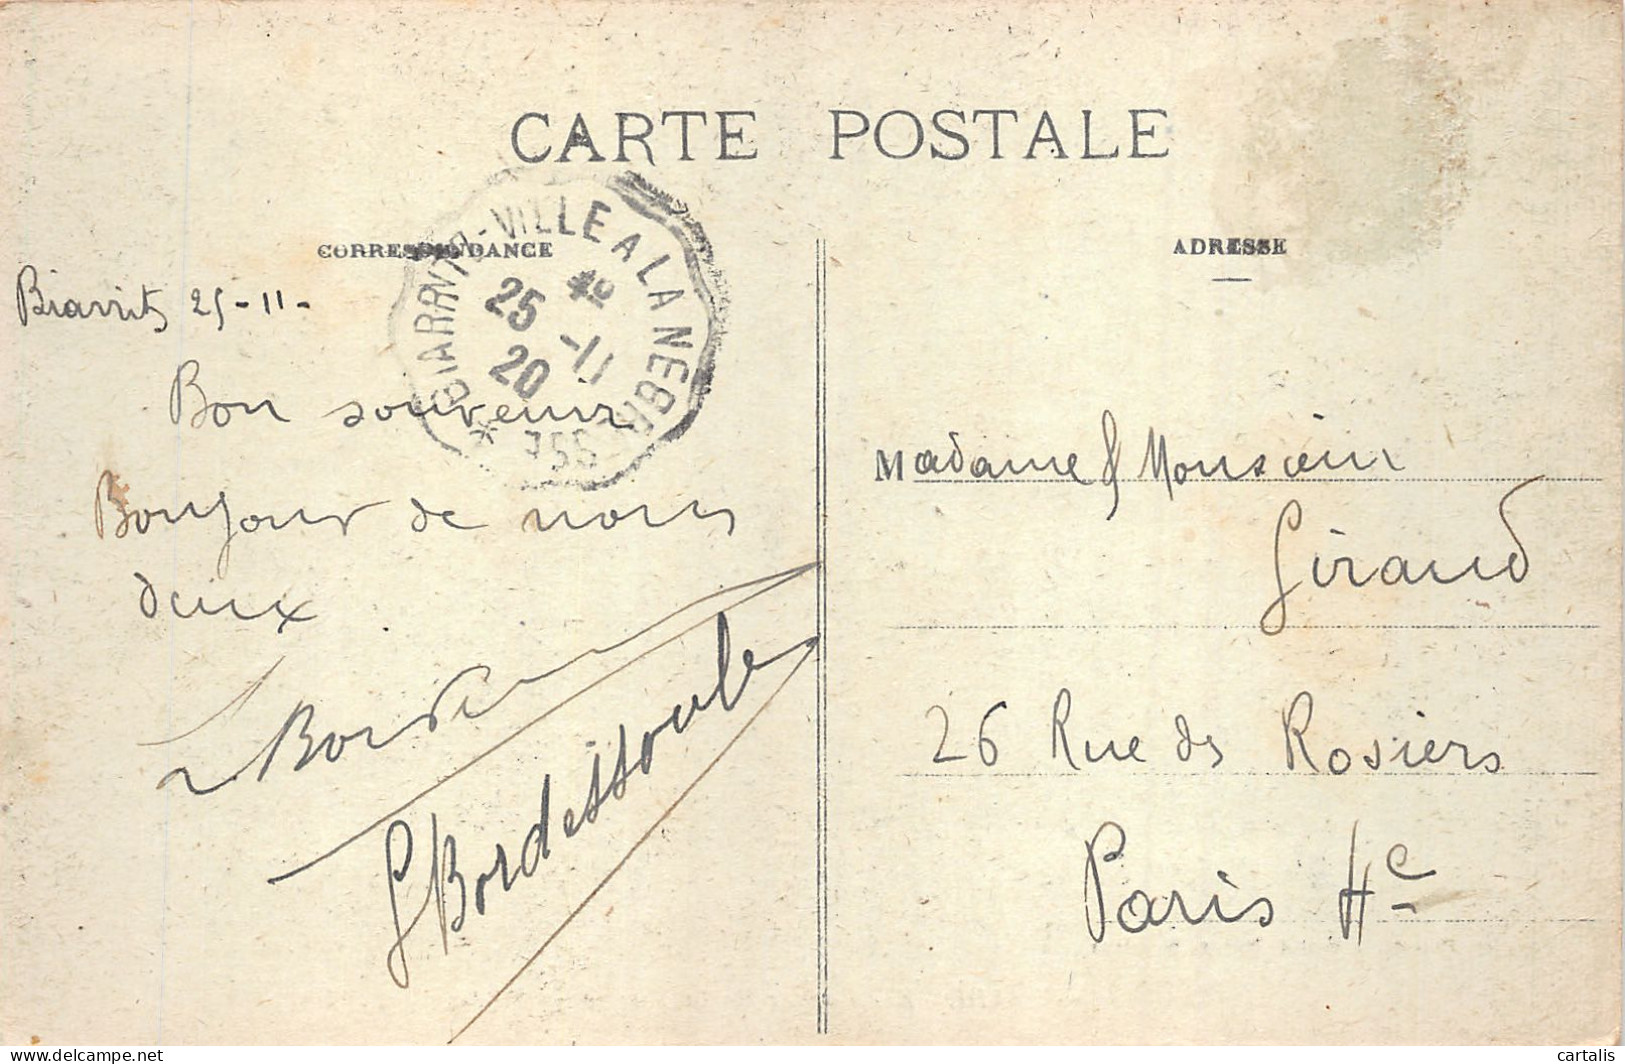 CARTE POSTALE
CORRESPONDANCE
ADRESSE
BIARRITZ-VILLE A LA NEGRESSE
25 -11
20
Biarritz 25-11-
Bon souvenir
Bonjour de nous
deux
G Bordessoule
Madame & Monsieur
Giraud
26 Rue des Rosiers
Paris 4e
delcampe.net
cartalis